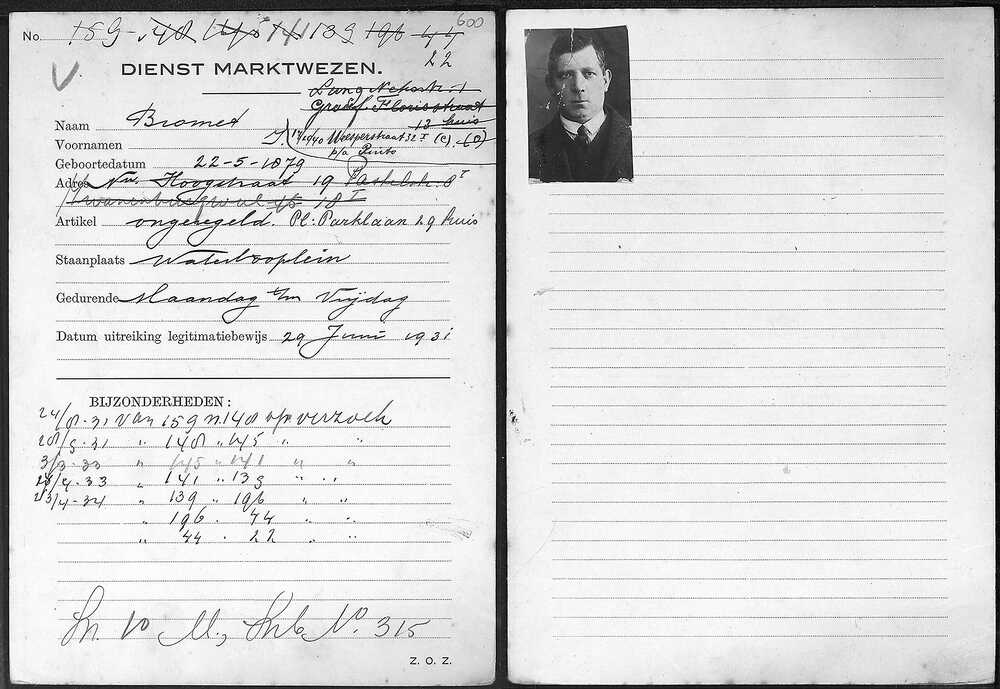 600
No. 159 148 145 141 139 196 44
22
DIENST MARKTWEZEN.
Lange
Graaf Florisstraat
13 huis
Naam Bromet
Voornamen J.
Weesperstraat 32 I (C)
p/a Pinto
Geboortedatum 22-5-1879
Adres Nw. Hoogstraat 19 8 I
18 I
Artikel ongeregeld. Pl: Parklaan 29 huis
Staanplaats Waterlooplein
Gedurende Maandag t/m Vrijdag
Datum uitreiking legitimatiebewijs 29 Juni 1931
BIJZONDERHEDEN:
24/8-31 van 159 n. 148 op verzoek
28/9-31 " 148 " 145 " "
3/3-33 " 145 " 141 " "
28/4-33 " 141 " 139 " "
23/4-34 " 139 " 196 " "
" 196 " 44 " "
" 44 " 22 " "
No. 315
Z. O. Z.